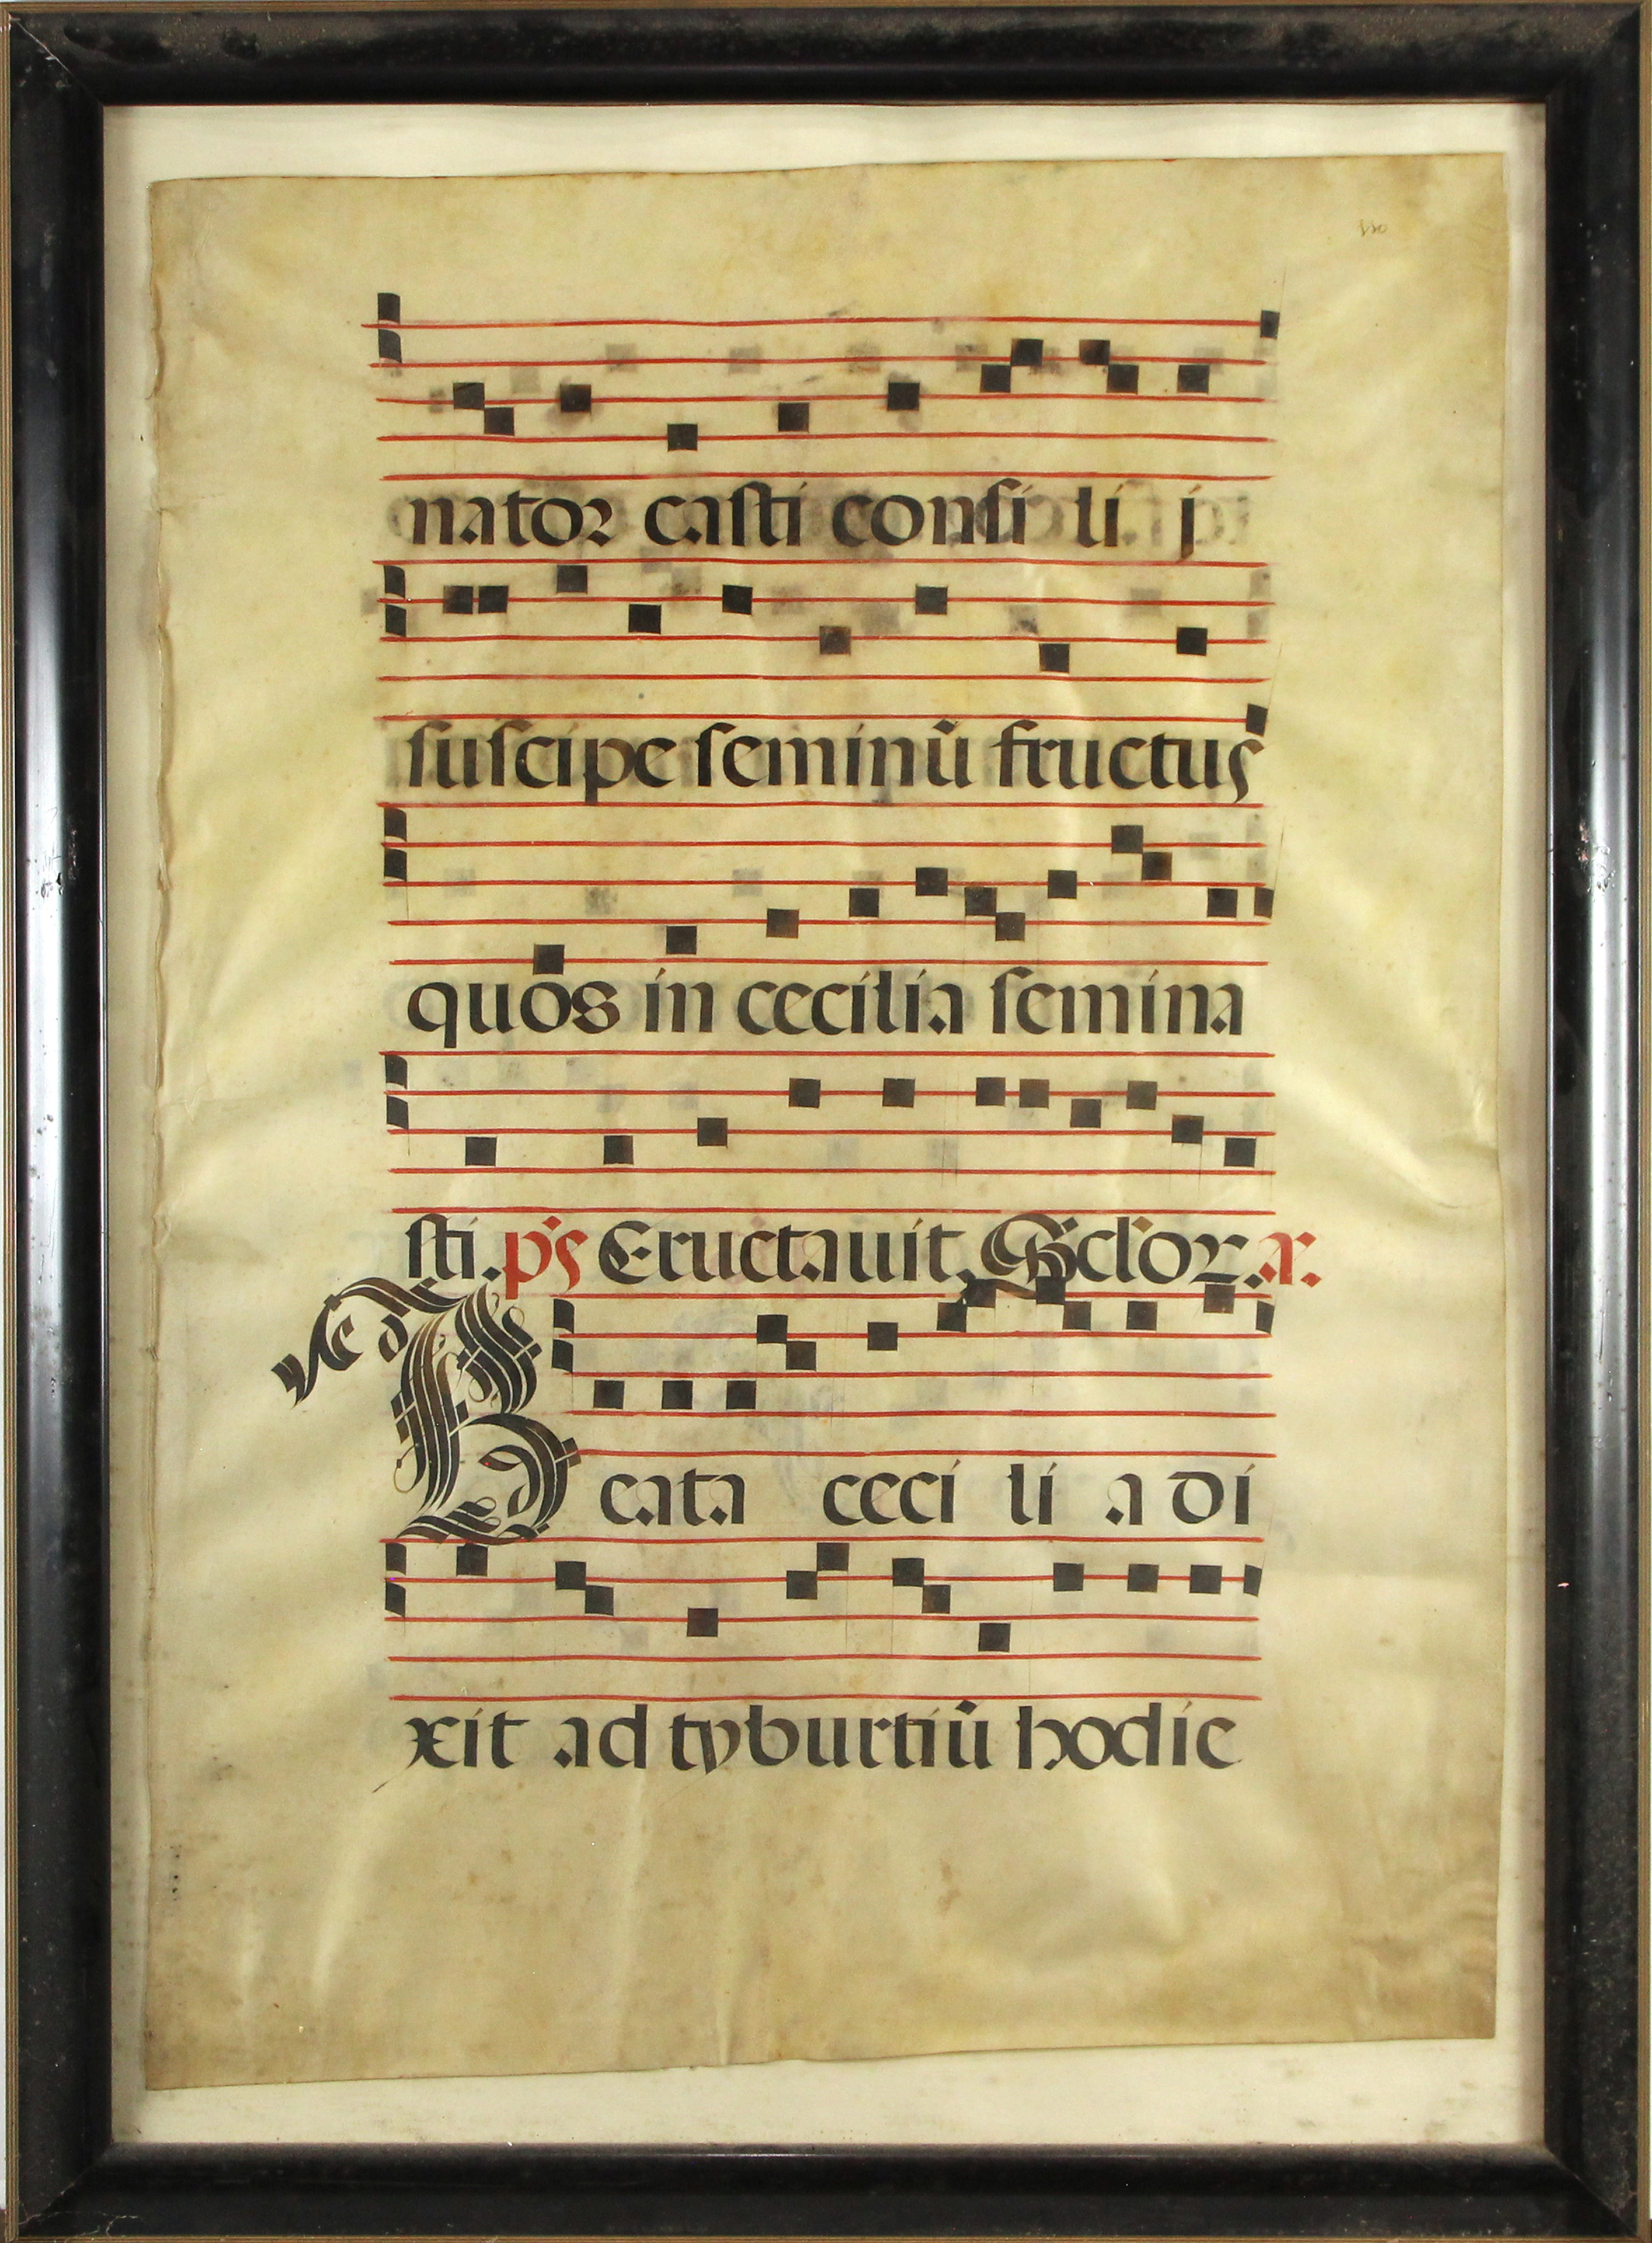 nator casti consi li j
suscipe seminū fructus
quos in cecilia semina
sti. ps Eructauit, Gclor. a.
B cata ceci li a di
xit ad tyburtiū hodie